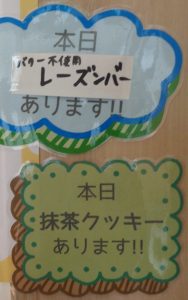 本日
バター不使用
レーズンバー
あります!!
本日
抹茶クッキー
あります!!